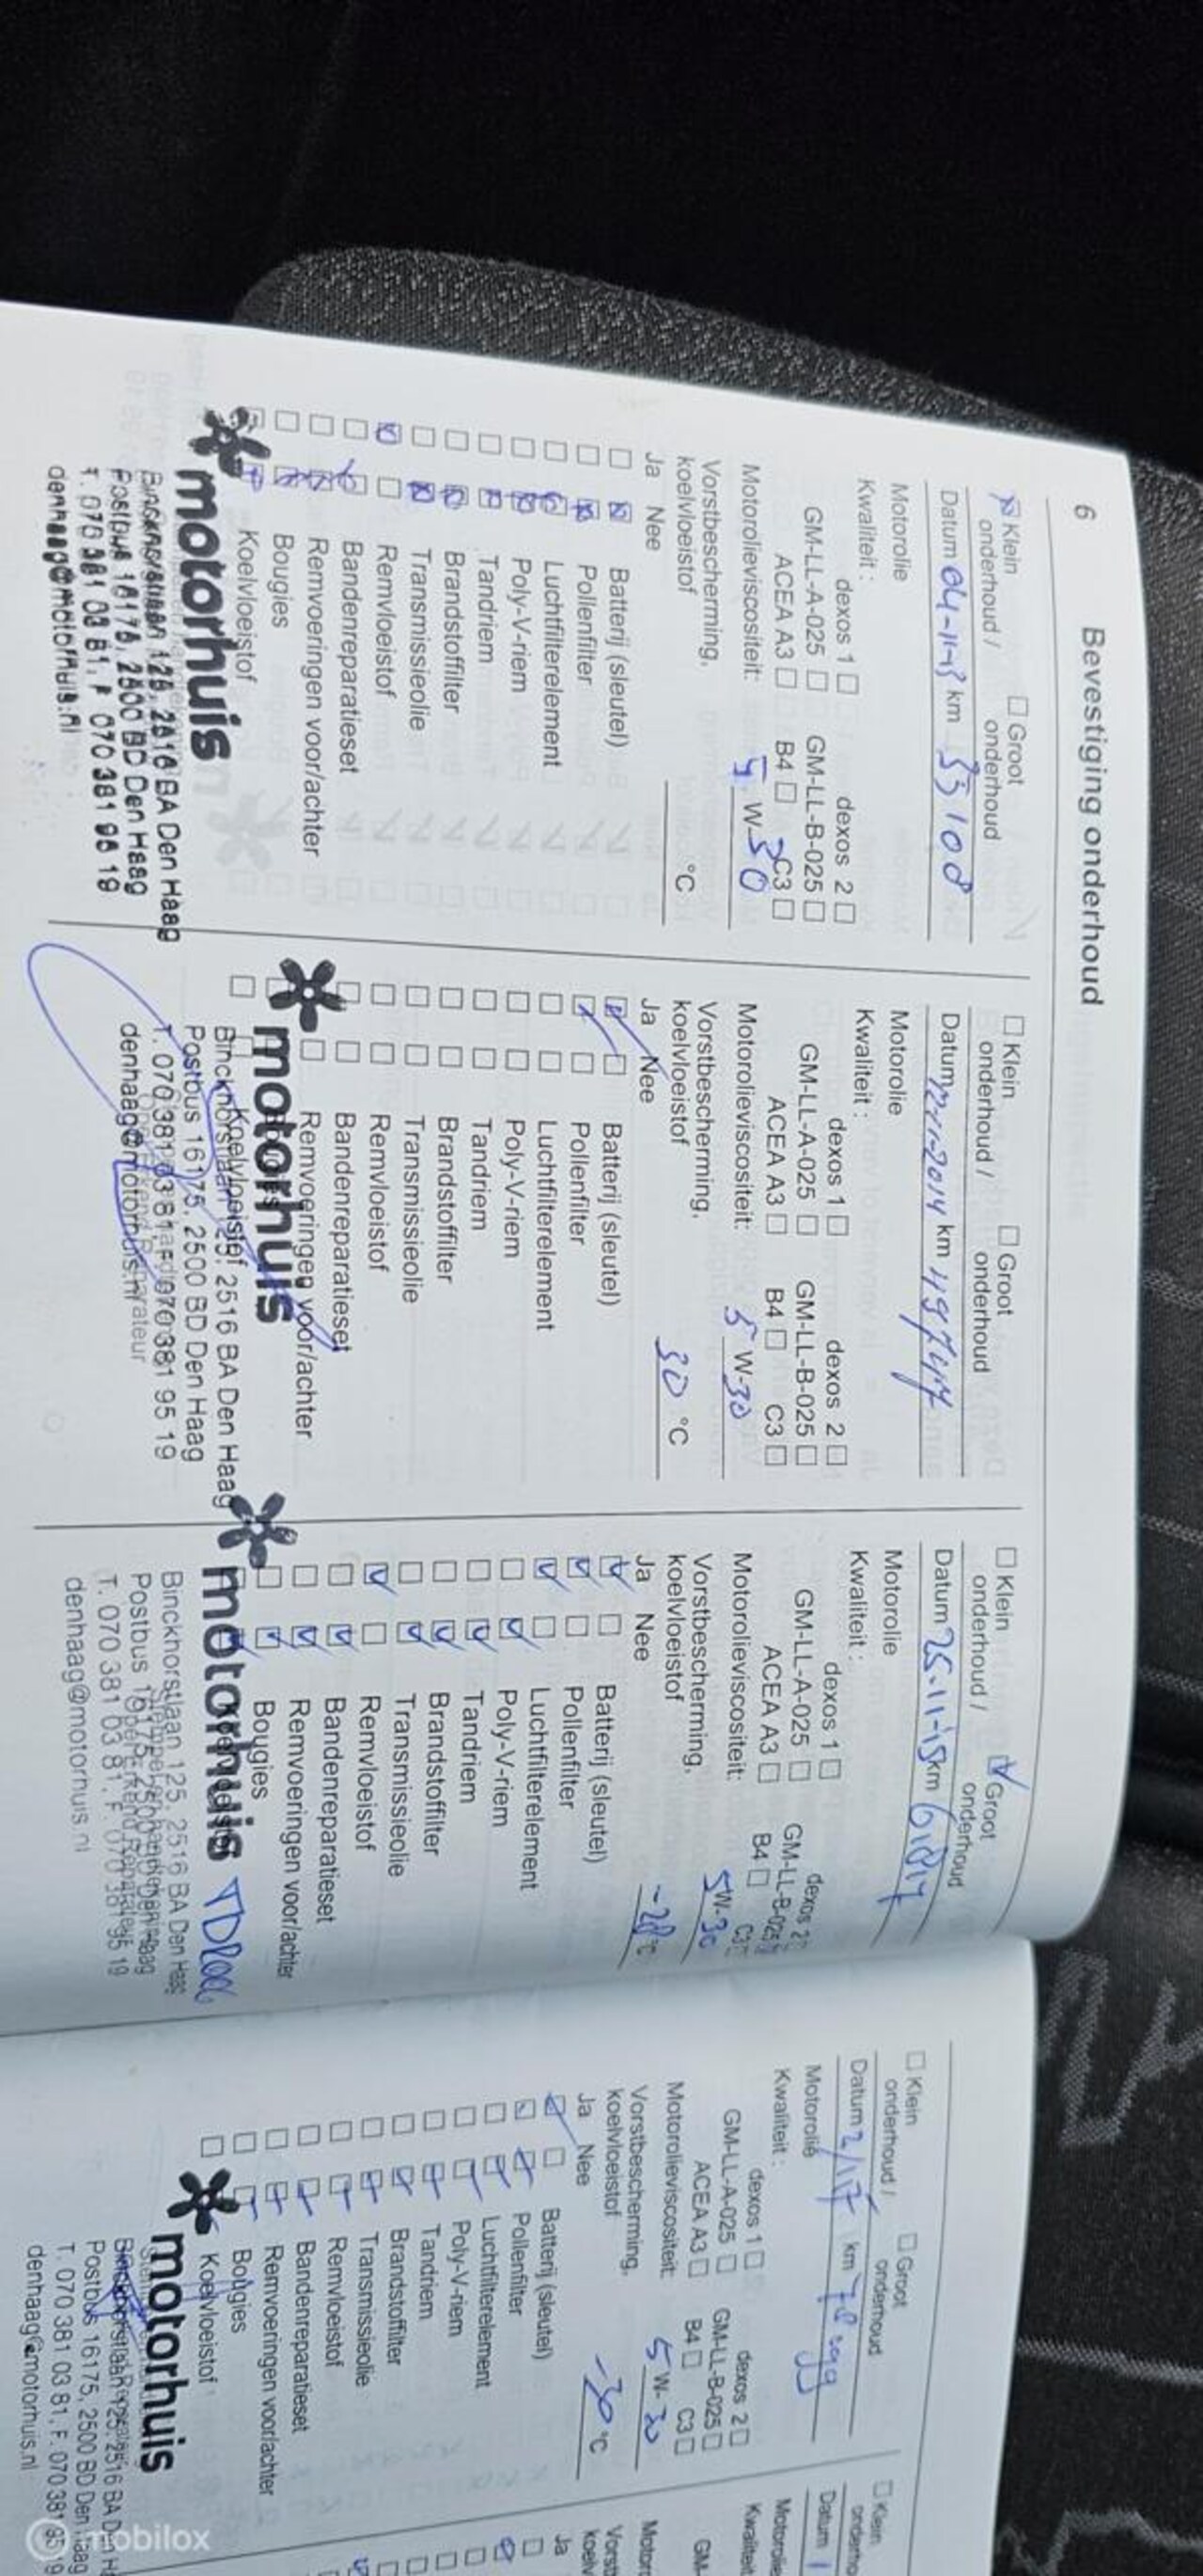 6 Bevestiging onderhoud
Klein onderhoud /
Groot onderhoud
Datum 04-11-13 km 33108
Motorolie
Kwaliteit :
dexos 1 dexos 2
GM-LL-A-025 GM-LL-B-025
ACEA A3 B4 C3
Motorolieviscositeit: 5 W-30
Vorstbescherming,
koelvloeistof °C
Ja Nee
Batterij (sleutel)
Pollenfilter
Luchtfilterelement
Poly-V-riem
Tandriem
Brandstoffilter
Transmissieolie
Remvloeistof
Bandenreparatieset
Remvoeringen voor/achter
Bougies
Koelvloeistof
motorhuis
Binckhorstlaan 125, 2516 BA Den Haag
Postbus 16175, 2500 BD Den Haag
T. 070 381 03 81, F 070 381 95 19
denhaag@motorhuis.nl
Klein onderhoud /
Groot onderhoud
Datum km 49747
Motorolie
Kwaliteit :
dexos 1 dexos 2
GM-LL-A-025 GM-LL-B-025
ACEA A3 B4 C3
Motorolieviscositeit: 5 W-30
Vorstbescherming,
koelvloeistof 30 °C
Ja Nee
Batterij (sleutel)
Pollenfilter
Luchtfilterelement
Poly-V-riem
Tandriem
Brandstoffilter
Transmissieolie
Remvloeistof
Bandenreparatieset
Remvoeringen voor/achter
Koelvloeistof
motorhuis
Binckhorstlaan 125, 2516 BA Den Haag
Postbus 16175, 2500 BD Den Haag
T. 070 381 03 81, F. 070 381 95 19
denhaag@motorhuis.nl
Klein onderhoud /
Groot onderhoud
Datum 25-11-15 km 61817
Motorolie
Kwaliteit :
dexos 1 dexos 2
GM-LL-A-025 GM-LL-B-025
ACEA A3 B4 C3
Motorolieviscositeit: 5W-30
Vorstbescherming,
koelvloeistof °C
Ja Nee
Batterij (sleutel)
Pollenfilter
Luchtfilterelement
Poly-V-riem
Tandriem
Brandstoffilter
Transmissieolie
Remvloeistof
Bandenreparatieset
Remvoeringen voor/achter
Bougies
motorhuis
Binckhorstlaan 125, 2516 BA Den Haag
Postbus 16175, 2500 BD Den Haag
T. 070 381 03 81, F. 070 381 95 19
denhaag@motorhuis.nl
Klein onderhoud /
Groot onderhoud
Datum km
Motorolie
Kwaliteit :
dexos 1 dexos 2
GM-LL-A-025 GM-LL-B-025
ACEA A3 B4 C3
Motorolieviscositeit: 5 W-30
Vorstbescherming,
koelvloeistof -30 °C
Ja Nee
Batterij (sleutel)
Pollenfilter
Luchtfilterelement
Poly-V-riem
Tandriem
Brandstoffilter
Transmissieolie
Remvloeistof
Bandenreparatieset
Remvoeringen voor/achter
Bougies
Koelvloeistof
motorhuis
Postbus 16175, 2500 BD Den Haag
T. 070 381 03 81, F. 070 381 95 19
denhaag@motorhuis.nl
Klein
Datum
Motorolie
Kwaliteit
GM-
Ja
mobilox